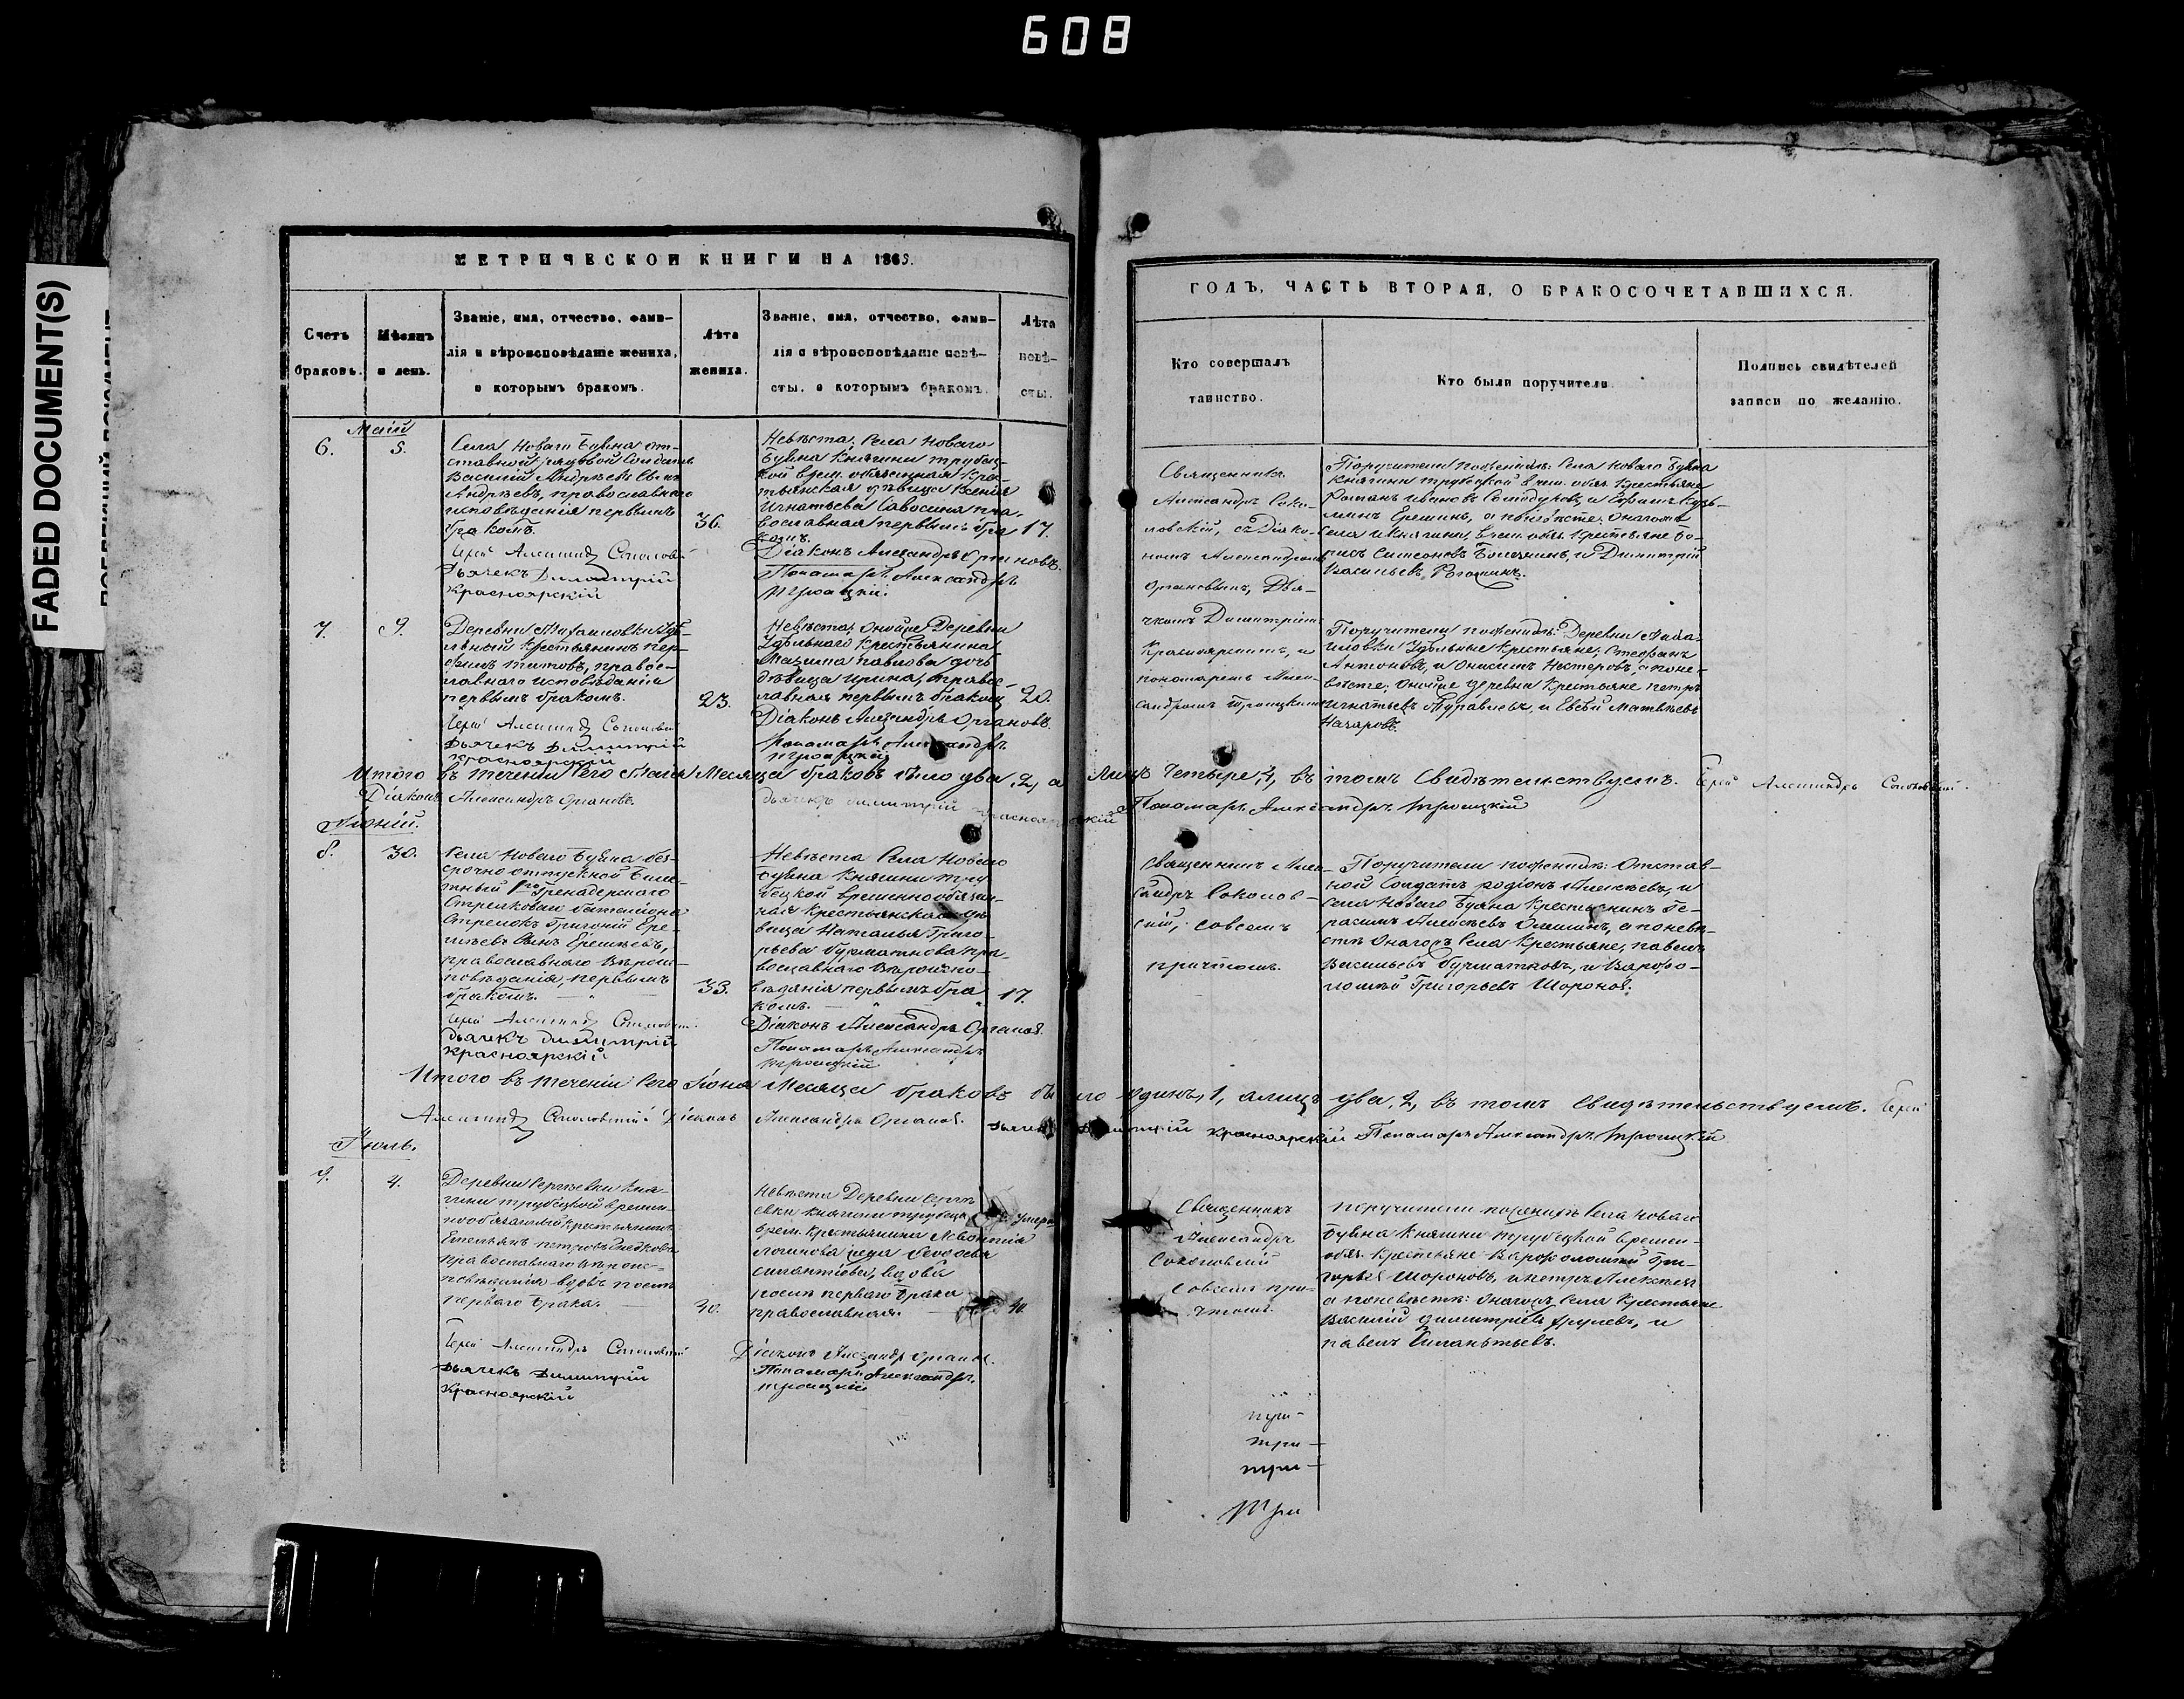 608
FADED DOCUMENT(S)
МЕТРИЧЕСКОЙ КНИГИ НА 1865.
Счетъ браковъ.
Мѣсяцъ и день.
Званіе, имя, отчество, фами-
лія и вѣроисповѣданіе жениха,
и которымъ бракомъ.
Лѣта жениха.
Званіе, имя, отчество, фами-
лія и вѣроисповѣданіе невѣ-
сты, и которымъ бракомъ.
Лѣта невѣ-
сты.
ГОДЪ, ЧАСТЬ ВТОРАЯ, О БРАКОСОЧЕТАВШИХСЯ.
Кто совершалъ
таинство.
Кто были поручители
Подпись свидѣтелей
записи по желанію.
Маій
6.
5.
Села Новаго Буяна от-
ставной рядовой Солдатъ
Василій Андреевъ Сынъ
Андреевъ, православнаго
исповѣданія первымъ
бракомъ.
36.
Іерей Александръ Соколовскій
Дьячекъ Димитрій
Красноярскій
Невѣста: Села Новаго
Буяна Княгини Трубец-
кой врем. обязанная кре-
стьянская дѣвица Ксенія
Игнатьева Савосина пра-
вославная первымъ бра
комъ.
17.
Діаконъ Александръ Органовъ.
Пономарь Александръ
Троицкій
Священникъ
Александръ Соко-
ловскій, съ Діако-
номъ Александромъ
Органовымъ, Дья-
чкомъ Димитріемъ
Красноярскимъ, и
пономаремъ Алек-
сандромъ Троицкимъ
Поручители по женихѣ: Села Новаго Буяна
Княгини Трубецкой врем. обяз. Крестьяне
Романъ Ивановъ и Ефимъ Кузь-
минъ Ерешинъ, а по невѣстѣ: онагожъ
Села и Княгини, врем. обяз. Крестьяне Бо-
рисъ Симеоновъ и Димитрій
Васильевъ
7.
9.
Деревни Михайловки Удѣ-
льный Крестьянинъ пер-
Титовъ, правос-
лавнаго исповѣданія
первымъ бракомъ.
23.
Іерей Александръ Соколовскій
Дьячекъ Димитрій
Красноярскій
Невѣста: Онойже Деревни
Удѣльнаго Крестьянина
Максима Павлова дочь
дѣвица Ирина, правос-
лавная первымъ бракомъ
20.
Діаконъ Александръ Органовъ.
Пономарь Александръ
Троицкій
Поручители по женихѣ: Деревни
Удѣльные Крестьяне; Стефанъ
Антоновъ, и Онисимъ Нестеровъ, а по не-
вѣсте; онойже деревни Крестьяне Петръ
Игнатьевъ Журавлевъ, и Евсѣй Матвѣевъ
Назаровъ.
Итого въ теченіи Сего Маія Месяца браковъ было два, 2, а лицъ четыре, 4, въ томъ Свидѣтельствуемъ. Іерей Александръ Соколовскій.
Діаконъ Александръ Органовъ. Дьячекъ Димитрій Красноярскій Пономарь Александръ Троицкій
Іюній.
8.
30.
Села Новаго Буяна без-
срочноотпускной Биле-
тный Гренадерскаго
Стрѣлковаго баталіона
Стрелокъ Григорій Ере-
мѣевъ Сынъ Еремѣевъ,
православнаго вѣроис-
повѣданія, первымъ
бракомъ.
33.
Іерей Александръ Соколовскій.
Дьячекъ Димитрій
Красноярскій
Невѣста Села Новаго
Буяна Княгини Тру
бецкой временнообязан-
ная Крестьянская дѣ
вица Наталья Григо-
рьева Бурматнова пра-
вославнаго вѣроиспо-
вѣданія первымъ бра
комъ.
17.
Діаконъ Александръ Органовъ.
Пономарь Александръ
Троицкій
Священникъ Алек-
сандръ Соколов-
скій, Совсемъ
причтомъ.
Поручители по женихѣ: Отстав-
ной Солдатъ Родіонъ Алексѣевъ, и
Села Новаго Буяна Крестьянинъ Ге-
расимъ Алексѣевъ а по невѣ-
стѣ Онагожъ Села Крестьяне, Павелъ
Васильевъ Бурматновъ, и Варфо-
ломѣй Григорьевъ Шороновъ.
Итого въ теченіи Сего Іюня Месяца браковъ было одинъ, 1, а лицъ два, 2, въ томъ Свидѣтельствуемъ. Іерей
Александръ Соколовскій Діаконъ Александръ Органовъ. Дьячекъ Димитрій Красноярскій Пономарь Александръ Троицкій
Іюль.
9.
4.
Деревни Сергѣевки Кня-
гини Трубецкой времян-
нообязанный Крестьянинъ
Емельянъ Петровъ
православнаго вѣроис-
повѣданія вдовъ послѣ
перваго брака.
30.
Іерей Александръ Соколовскій
Дьячекъ Димитрій
Красноярскій
Невѣста Деревни Сергѣ
евки Княгини Трубецк.
врем. Крестьянина Левонтія
вдова
послѣ перваго брака
православная.
Діаконъ Александръ Органовъ.
Пономарь Александръ
Троицкій
Священникъ
Александръ
Соколовскій
Совсемъ при-
чтомъ.
Поручители по женихѣ Села Новаго
Буяна Княгини Трубецкой времен-
обяз. Крестьяне Варфоломѣй Гри-
горьевъ Шороновъ, и Петръ Алексѣевъ
а по невѣстѣ: Онагожъ Села Крестьяне
Василій Димитріевъ и
Павелъ
при-
при-
при-
При